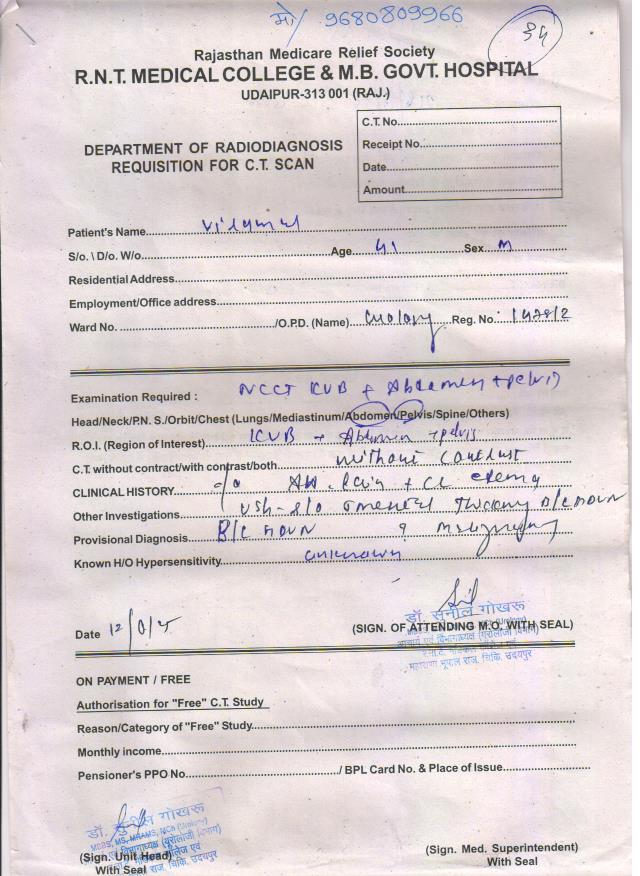 मो/ 9680809966
34
Rajasthan Medicare Relief Society
R.N.T. MEDICAL COLLEGE & M.B. GOVT. HOSPITAL
UDAIPUR-313 001 (RAJ.)
DEPARTMENT OF RADIODIAGNOSIS
REQUISITION FOR C.T. SCAN
C.T. No.
Receipt No.
Date
Amount
Patient's Name
S/o. \ D/o. W/o Age 41 Sex M
Residential Address
Employment/Office address
Ward No. /O.P.D. (Name) Urology Reg. No.
Examination Required : NCCT KUB + Abdomen + pelvis
Head/Neck/P.N. S./Orbit/Chest (Lungs/Mediastinum/Abdomen/Pelvis/Spine/Others)
R.O.I. (Region of Interest) KUB + Abdomen + pelvis
C.T. without contract/with contrast/both without contrast
CLINICAL HISTORY c/o
Other Investigations USG - s/o omental
Provisional Diagnosis B/L HDUN ? Malignancy
Known H/O Hypersensitivity unknown
डॉ सुनील गोखरू
Date
(SIGN. OF ATTENDING M.O. WITH SEAL)
महाराणा भूपाल राज. चिकि. उदयपुर
ON PAYMENT / FREE
Authorisation for "Free" C.T. Study
Reason/Category of "Free" Study
Monthly income
Pensioner's PPO No. / BPL Card No. & Place of Issue
डॉ. सुनील गोखरू
(Sign. Unit Head)
With Seal
(Sign. Med. Superintendent)
With Seal